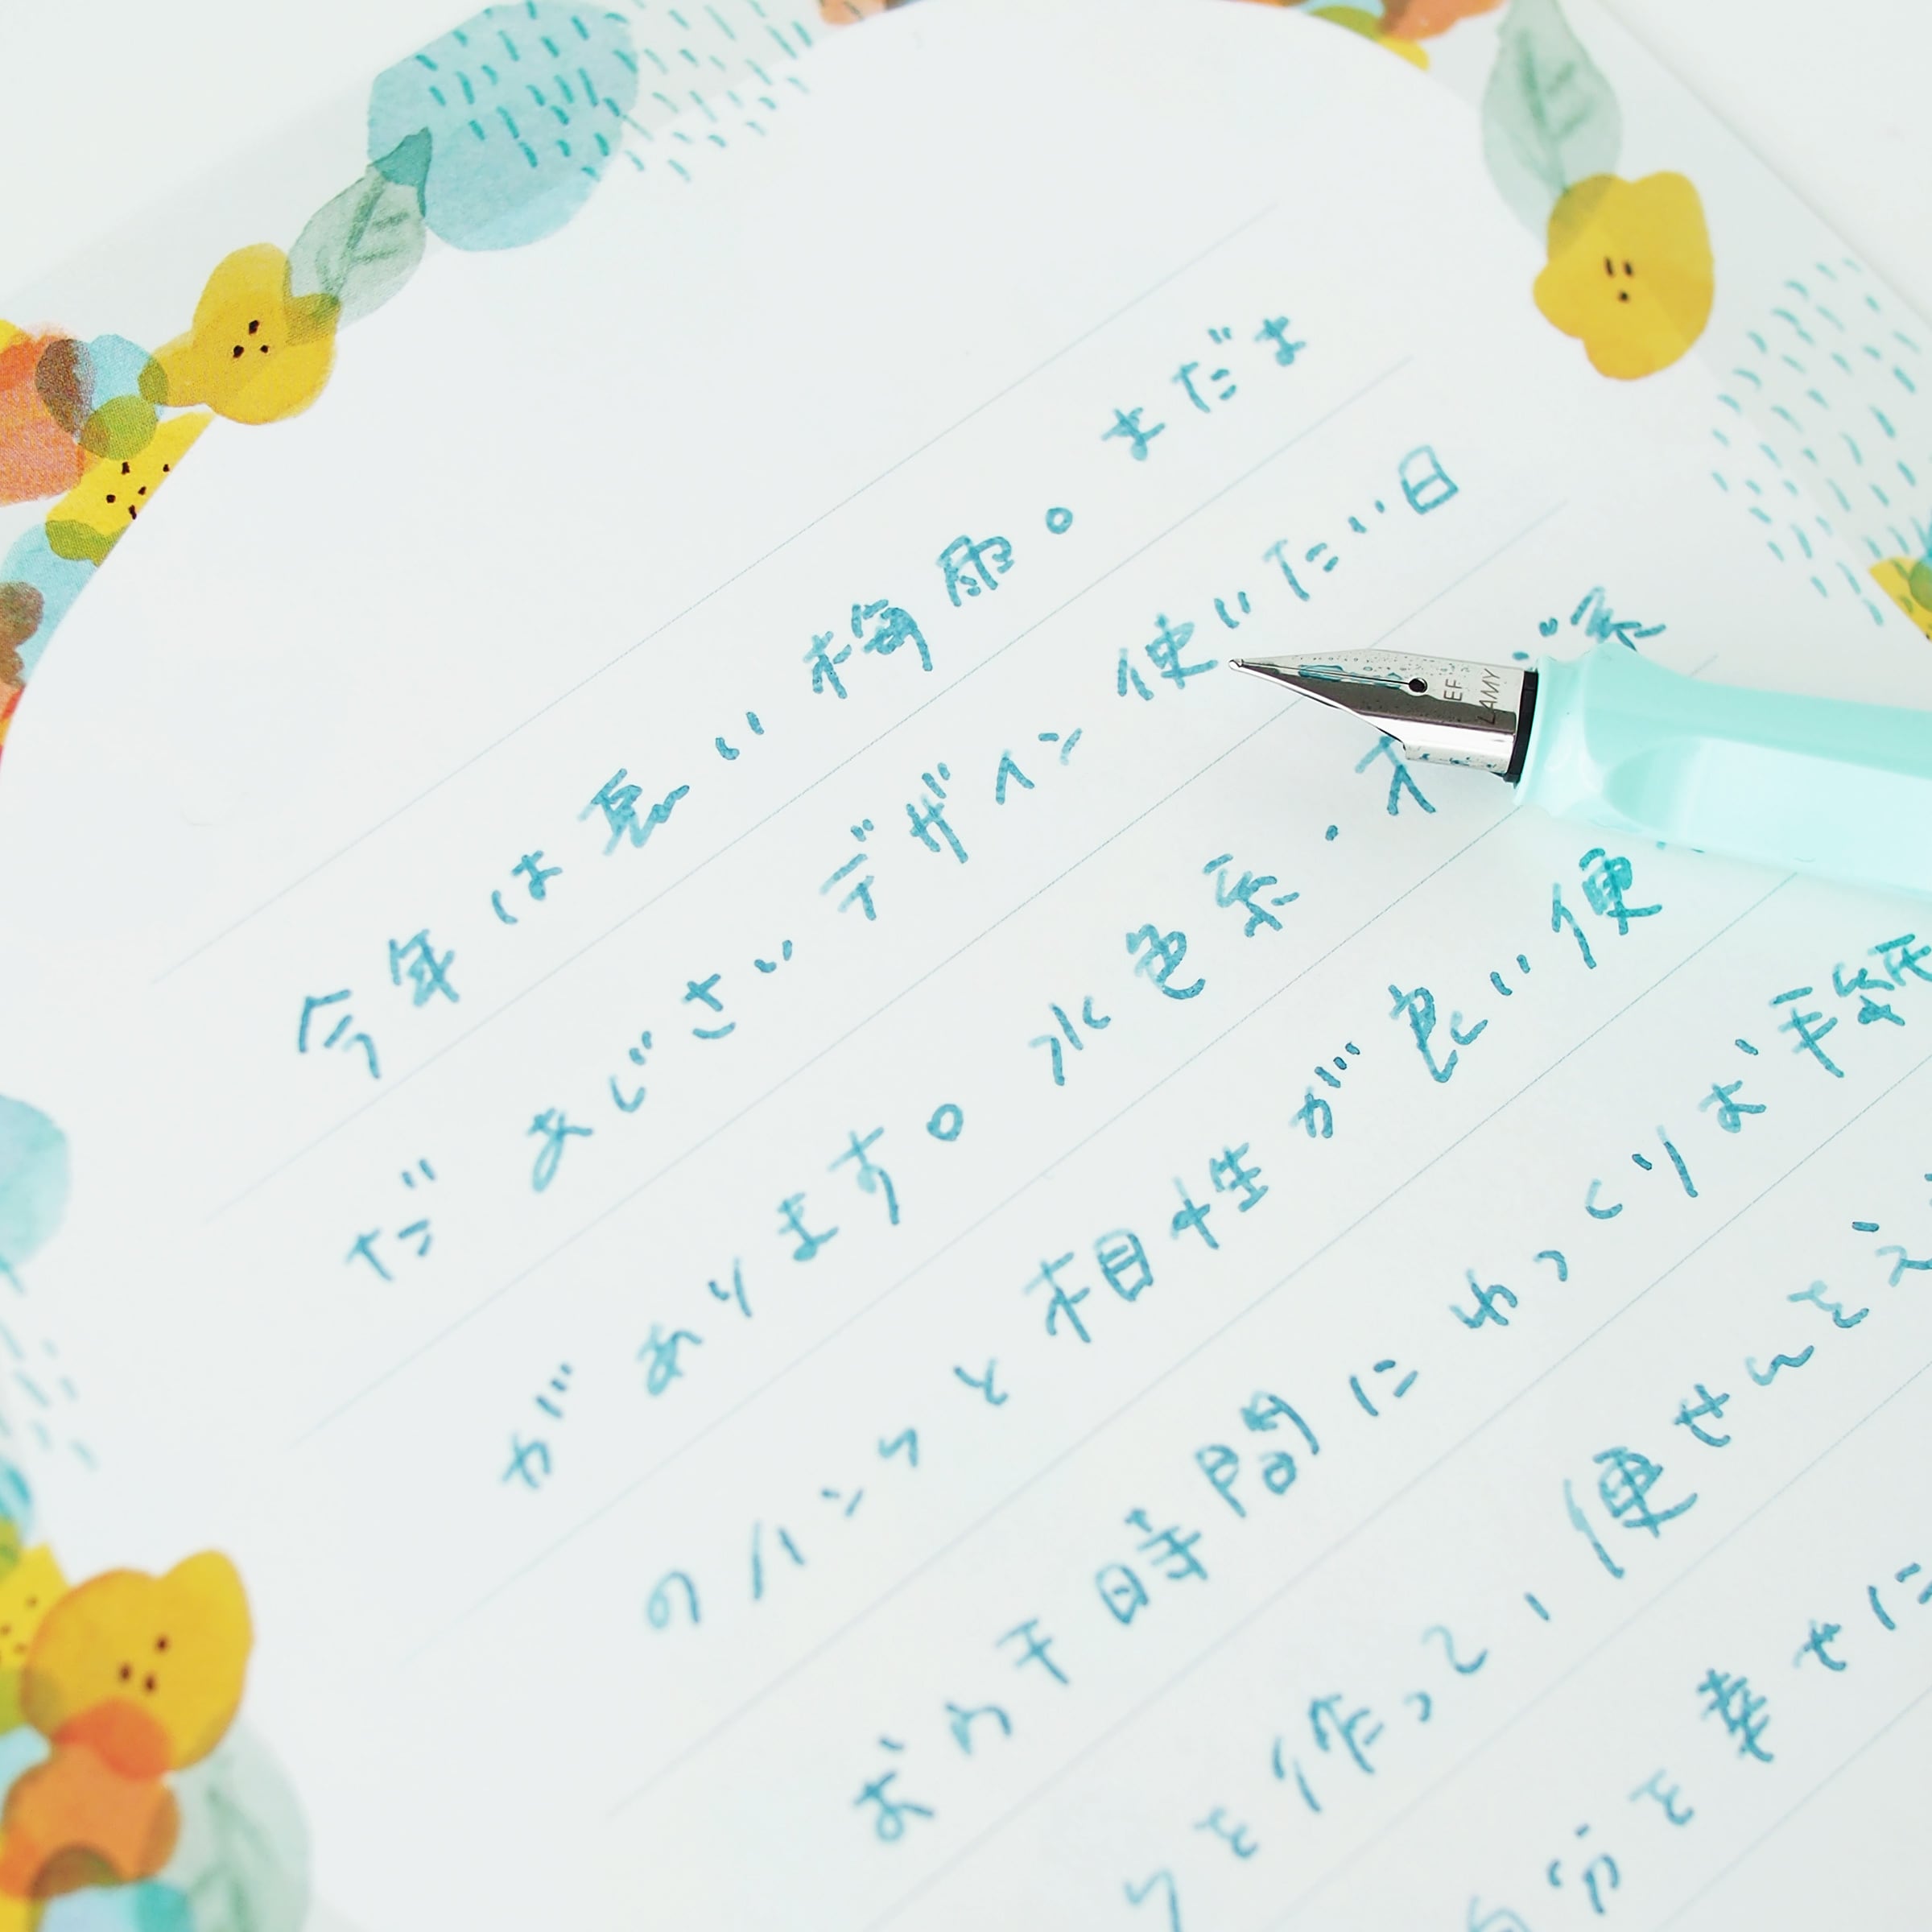 今年は長い梅雨。まだま
だ あじさいデザイン 使いたい日
があります。水色系・
のインクと相性が良い便
おウチ時間にゆっくりお手紙
を作って、便せんを
分を幸せに
EF
LAMY